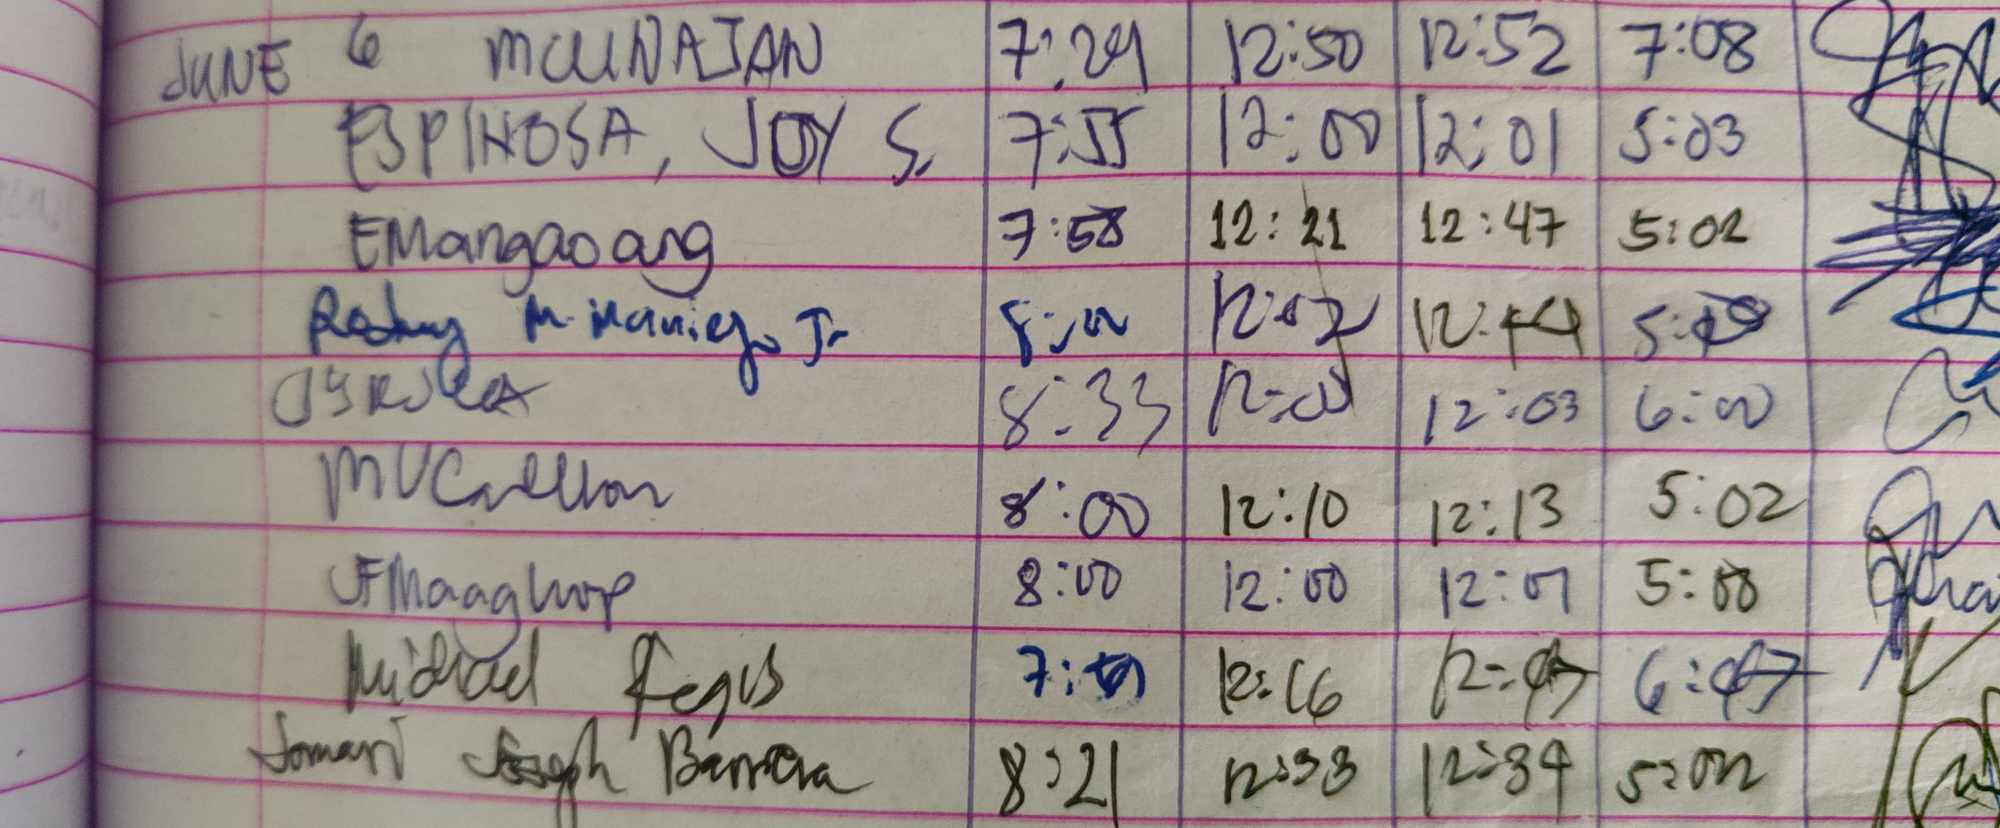 JUNE 6 MCUNAJAN 7:29 12:50 12:52 7:08
ESPINOSA, JOY S. 7:55 12:00 12:01 5:03
EMangaoang 7:58 12:21 12:47 5:02
M. Jr. 12:02 12:44
8:33 12:03 6:00
8:00 12:10 12:13 5:02
JFMaaghop 8:00 12:00 12:01 5:00
Michael Regis 12:16 12:47 6:47
Jomari Joseph Barrera 8:21 12:33 12:34 5:02